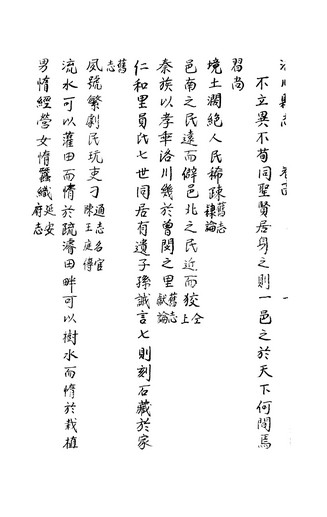 洛川縣志
不立異不苟同聖賢居身之則一邑之於天下何間焉
習尚
境土濶絶人民稀疎舊志建論
邑南之民遠而僻邑北之民近而狡仝上
秦族以孝乖洛川幾於曾閔之里舊志獻論
仁和里員氏七世同居有遺子孫誠言七則刻石藏於家
舊志
風號繁劇民玩吏刁通志名宦陳王庭傳
流水可以灌田而惰於疏濬田畔可以樹木而惰於栽植
男惰經營女惰蠶織延安府志